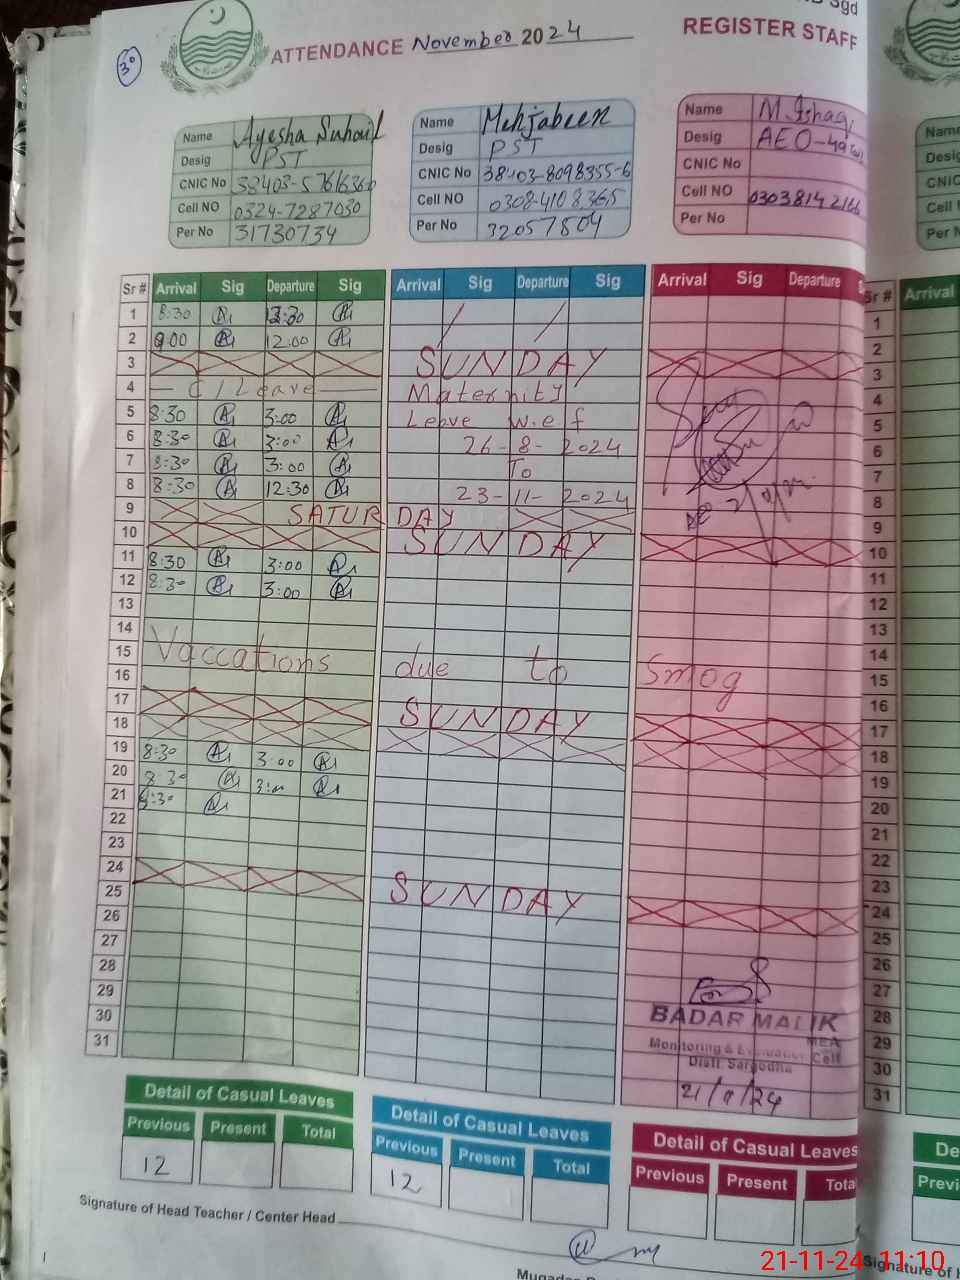 Sgd
ATTENDANCE November 2024
REGISTER STAFF
30
Name Ayesha Suhail
Desig PST
CNIC No
Cell NO 0324-7287030
Per No 31730734
Name Mehjabeen
Desig PST
CNIC No 38403-8098355-6
Cell NO 0308-4108365
Per No 32057804
Name M.Ishaq
Desig AEO-49
CNIC No
Cell NO
Per No
Name
Desig
CNIC
Cell
Per N
Sr # Arrival Sig Departure Sig Arrival Sig Departure Sig Arrival Sig Departure S Sr # Arrival
1 8:30 13:30 / / 1
2 9:00 12:00 2
3 SUNDAY 3
4 C/Leave Maternity 4
5 8:30 3:00 Leave w.e.f 5
6 8:30 3:00 26-8-2024 6
7 8:30 3:00 To 7
8 8:30 12:30 23-11-2024 8
9 SATURDAY 9
10 SUNDAY 10
11 8:30 3:00 11
12 8:30 3:00 12
13 13
14 14
15 Vaccations due to Smog 15
16 16
17 SUNDAY 17
18 18
19 8:30 3:00 19
20 8:30 3:00 20
21 8:30 21
22 22
23 23
24 SUNDAY 24
25 25
26 26
27 27
28 28
29 29
30 30
31 31
BADAR MALIK
MEA
Monitoring & Evaluation Cell
Distt. Sargodha
21/11/24
Detail of Casual Leaves
Previous Present Total
12
Detail of Casual Leaves
Previous Present Total
12
Detail of Casual Leaves
Previous Present Total
De
Previ
Signature of Head Teacher / Center Head
Signature of H
21-11-24 11:10